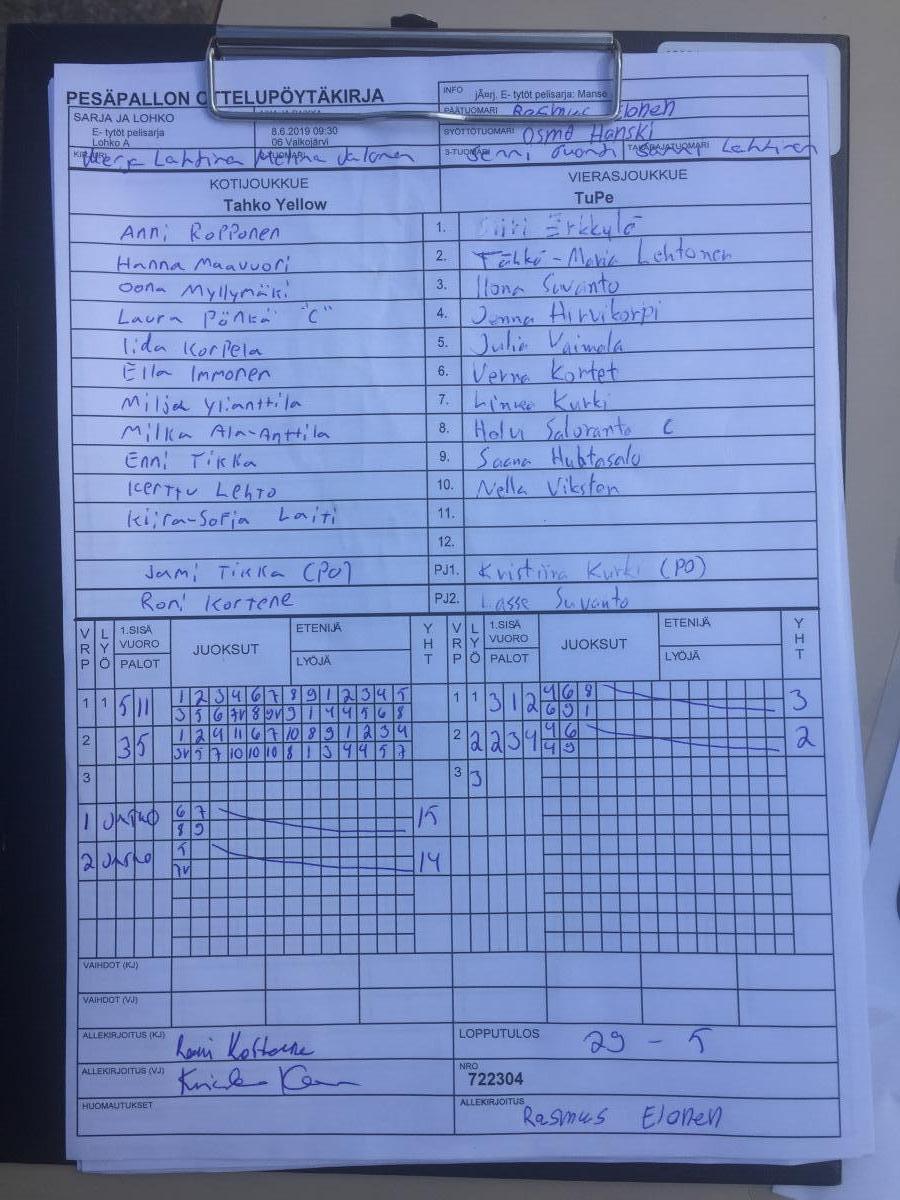 PESÄPALLON OTTELUPÖYTÄKIRJA
INFO jÃ¤rj. E- tytöt pelisarja: Manse
SARJA JA LOHKO
E- tytöt pelisarja
Lohko A
8.6.2019 09:30
06 Valkojärvi
PÄÄTUOMARI Rasmus Elonen
SYÖTTÖTUOMARI Osmo Hanski
Lahtinen
3-TUOMARI Jenni
TAKARAJATUOMARI Lahtinen
KOTIJOUKKUE
Tahko Yellow
VIERASJOUKKUE
TuPe
Anni Ropponen 1. Erkkylä
Hanna Maavuori 2. -Maria Lehtonen
Oona Myllymäki 3. Ilona Suvanto
Laura Pönkä "C" 4. Jenna Hirvikorpi
Iida Korpela 5. Julia Vaimala
Ella Immonen 6. Verna Kortet
Milja Ylianttila 7. Linnea Kurki
Milka Ala-Anttila 8. Helvi Saloranta C
Enni Tikka 9. Saana Huhtasalo
Kerttu Lehto 10. Nella Viksten
Kiira-Sofia Laiti 11.
12.
Jami Tikka (PO) PJ1. Kristiina Kurki (PO)
Roni Kortene PJ2. Lasse Suvanto
VRP LYÖ 1.SISÄ VUORO PALOT JUOKSUT ETENIJÄ LYÖJÄ YHT VRP LYÖ 1.SISÄ VUORO PALOT JUOKSUT ETENIJÄ LYÖJÄ YHT
1 1 5 11 1 2 3 4 6 7 8 9 1 2 3 4 5 1 1 3 1 2 4 6 8 3
3 5 6 7V 8 9V 9 1 4 4 5 6 8 6 9 1
2 3 5 1 2 4 11 6 7 10 8 9 1 2 3 4 2 2 2 3 4 4 6 2
3V 5 7 10 10 10 8 1 3 4 4 5 7 4 9
3 3 3
1 JATKO 6 7 15
8 9
2 JATKO 5 14
7V
VAIHDOT (KJ)
VAIHDOT (VJ)
ALLEKIRJOITUS (KJ) LOPPUTULOS 29 - 5
ALLEKIRJOITUS (VJ) NRO
722304
HUOMAUTUKSET ALLEKIRJOITUS Rasmus Elonen